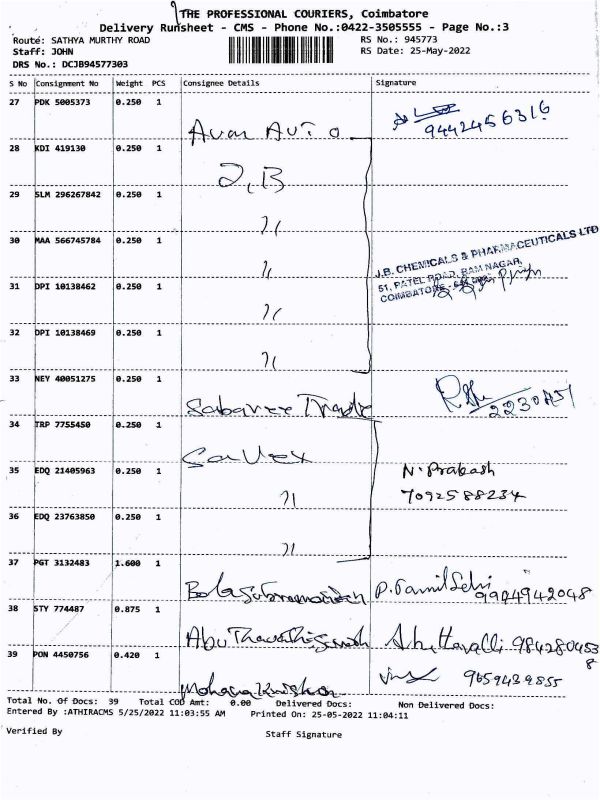 THE PROFESSIONAL COURIERS, Coimbatore
Delivery Runsheet - CMS - Phone No.:0422-3505555 - Page No.:3
Route: SATHYA MURTHY ROAD RS No.: 945773
Staff: JOHN RS Date: 25-May-2022
DRS No.: DCJB94577303
S No Consignment No Weight PCS Consignee Details Signature
27 PDK 5005373 0.250 1
Auto 9442456316
28 KDI 419130 0.250 1
J.B
29 SLM 296267842 0.250 1
30 MAA 566745784 0.250 1
J.B. CHEMICALS & PHARMACEUTICALS LTD
51, PATEL ROAD, RAM NAGAR,
COIMBATORE
31 DPI 10138462 0.250 1
32 DPI 10138469 0.250 1
33 NEY 40051275 0.250 1
Sabaree Trade
34 TRP 7755450 0.250 1
35 EDQ 21405963 0.250 1
N. Prakash
7092588234
36 EDQ 23763850 0.250 1
37 PGT 3132483 1.600 1
Balasubramanian
38 STY 774487 0.875 1
39 PON 4450756 0.420 1
9659439855
Mohana Krishna
Total No. Of Docs: 39 Total COD Amt: 0.00 Delivered Docs: Non Delivered Docs:
Entered By :ATHIRACMS 5/25/2022 11:03:55 AM Printed On: 25-05-2022 11:04:11
Verified By Staff Signature